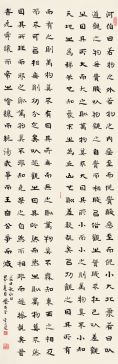 河伯曰若物之外若物之內惡至而倪貴賤惡至而倪小大北海若曰以
道觀之物無貴賤以物觀之自貴而相賤以俗觀之貴賤不在己以差觀
之因其所大而大之則萬物莫不大因其所小而小之則萬物莫不小知
天地之為稊米也知毫末之為丘山也則差數覩矣以功觀之因其所有
而有之則萬物莫不有因其所無而無之則萬物莫不無知東西之相反
而不可以相無則功分定矣以趣觀之因其所然而然之則萬物莫不然
因其所非而非之則萬物莫不非知堯桀之自然而相非則趣操覩矣昔者
堯舜讓而帝之噲讓而絕湯武爭而王白公爭而滅